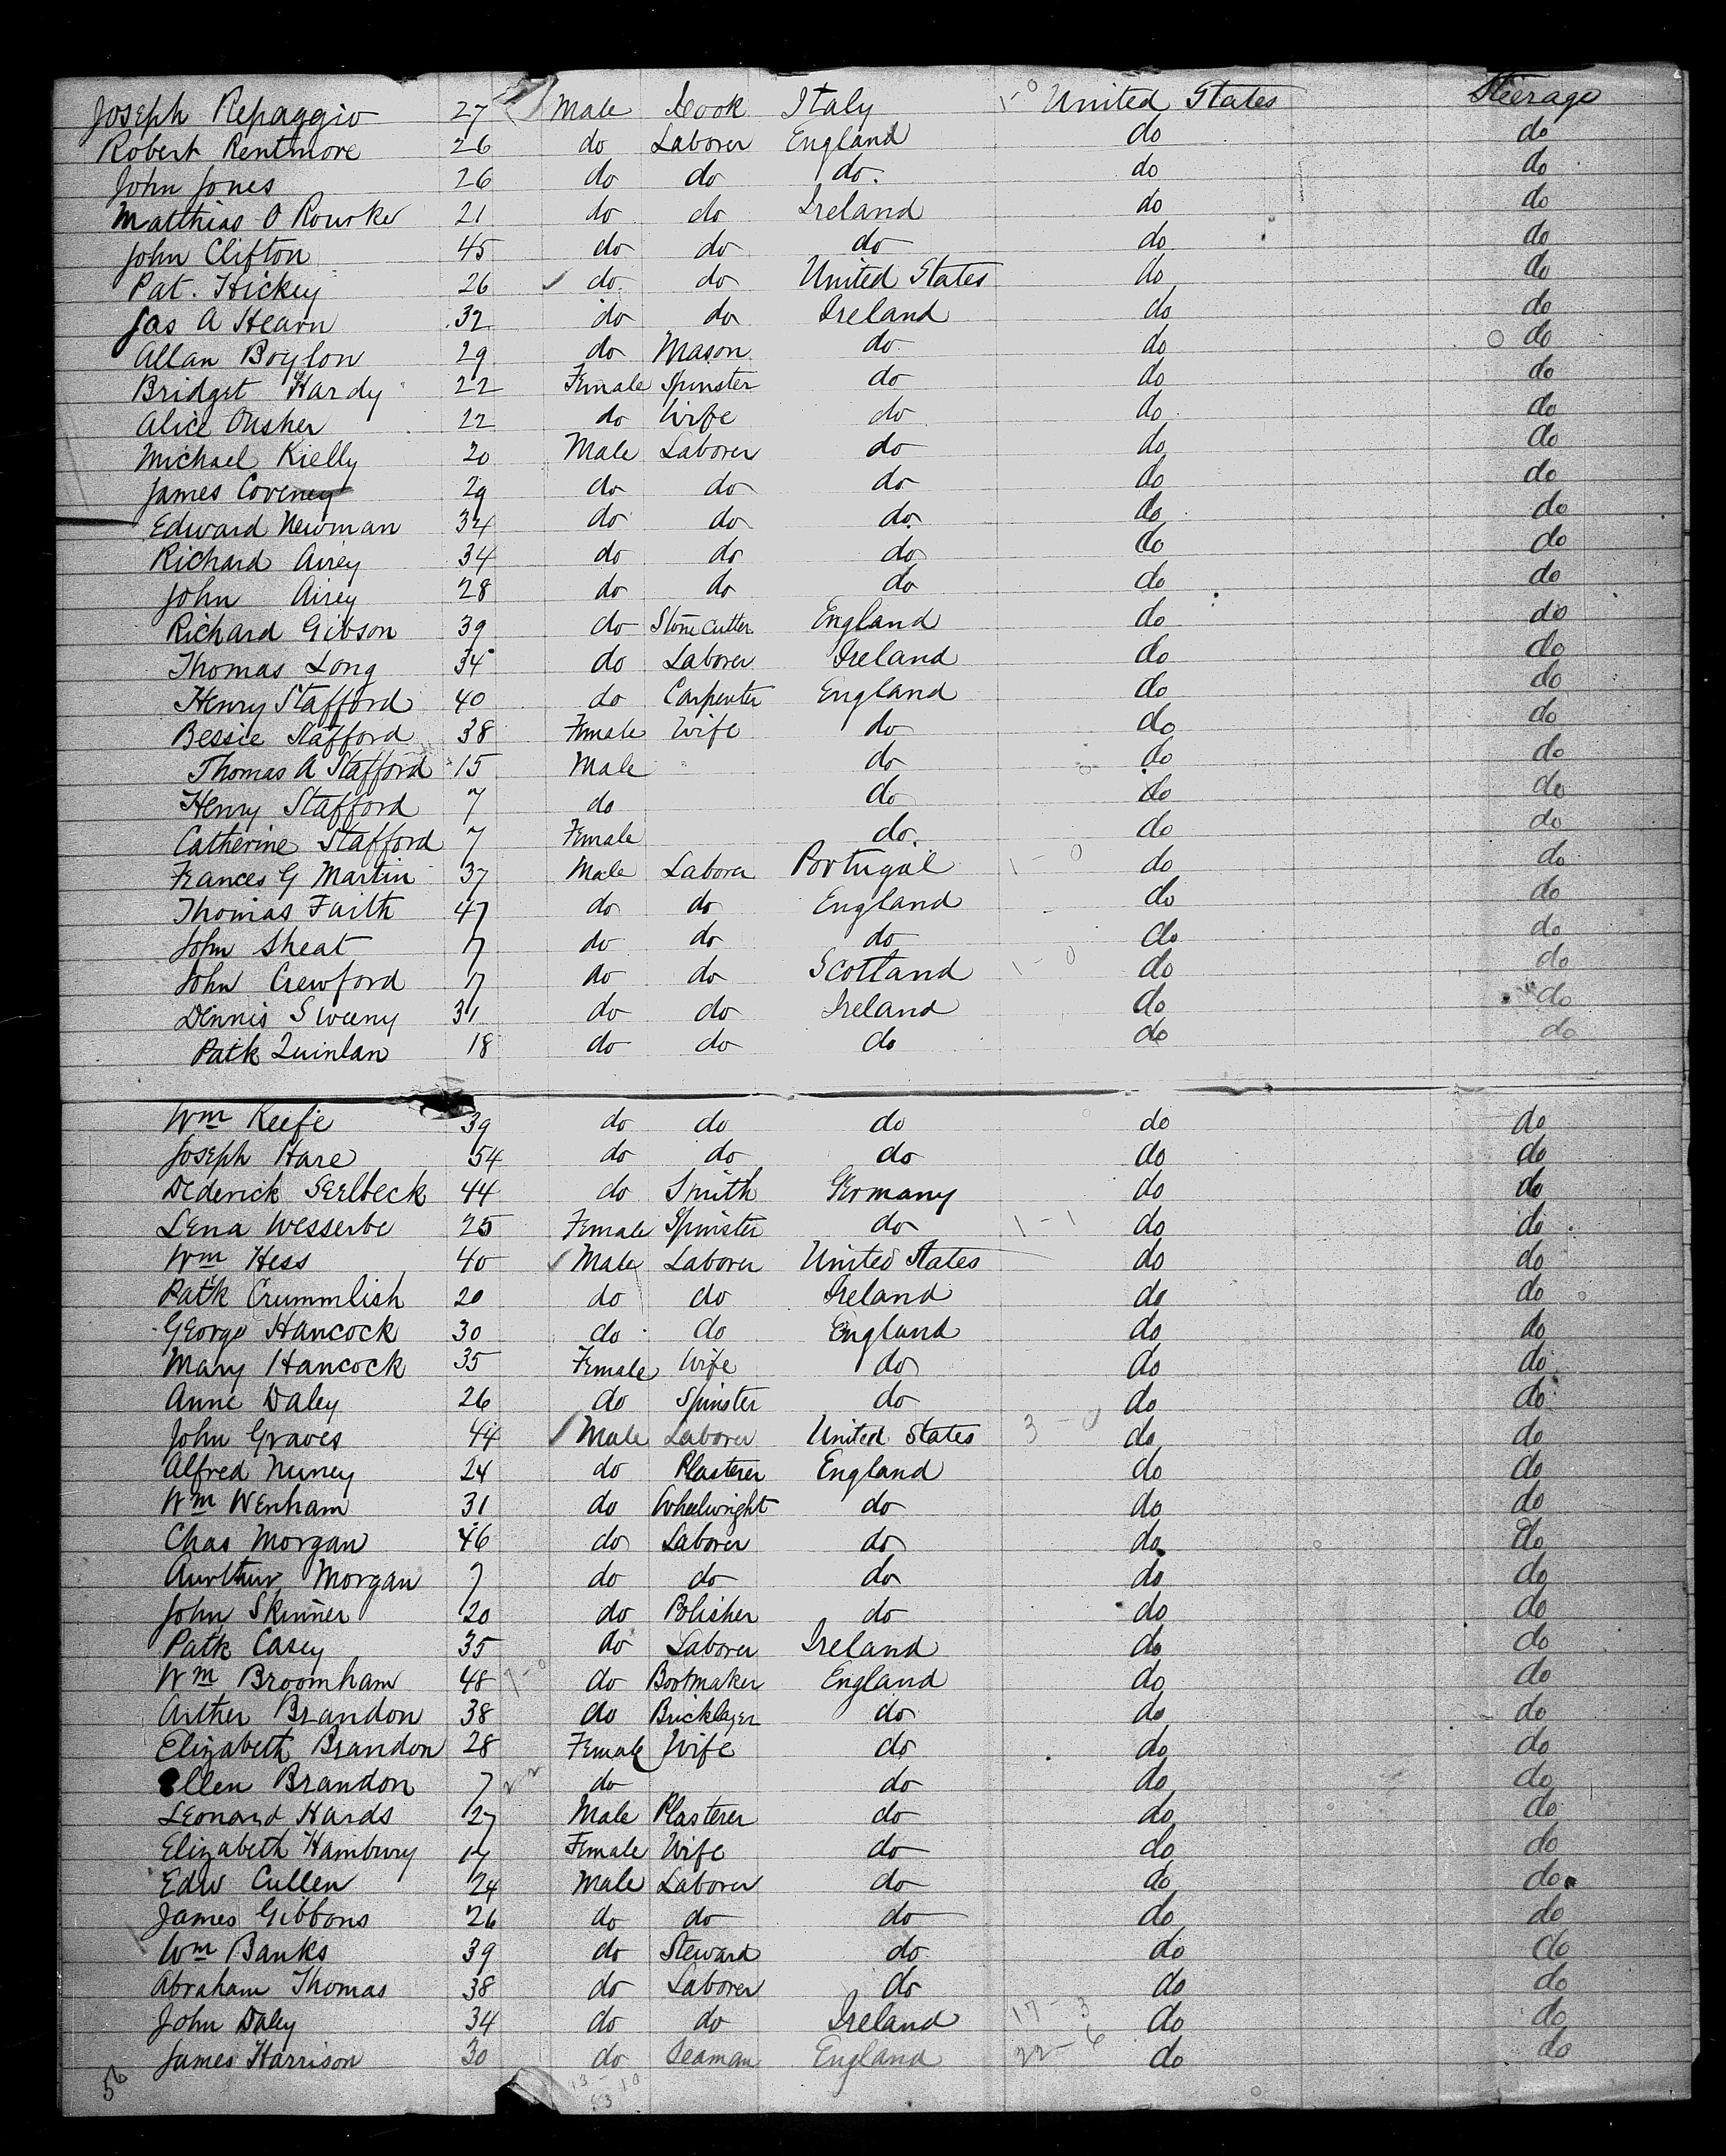 Joseph Repaggio 27 Male Cook Italy 1-0 United States Steerage
Robert Rentmore 26 do Laborer England do do
John Jones 26 do do do. do do
Matthias O Rourke 21 do do Ireland do do
John Clifton 45 do do do do do
Pat. Hickey 26 do do United States do do
Jas A Hearn 32 do do Ireland do do
Allan Boylon 29 do Mason do do do
Bridget Hardy 22 Female Spinster do do do
Alice Ousher 22 do Wife do do do
Michael Kielly 20 Male Laborer do do do
James Coveney 29 do do do do do
Edward Newman 34 do do do do do
Richard Airey 34 do do do do do
John Airey 28 do do do do do
Richard Gibson 39 do Stone Cutter England do do
Thomas Long 34 do Laborer Ireland do do
Henry Stafford 40 do Carpenter England do do
Bessie Stafford 38 Female Wife do do do
Thomas A Stafford 15 Male do do do
Henry Stafford 7 do do do do
Catherine Stafford 7 Female do. do do
Frances G Martin 37 Male Laborer Portugal 1-0 do do
Thomas Faith 47 do do England do do
John Sheat 17 do do do do do
John Crewford 17 do do Scotland 1-0 do do
Dennis Sweeny 31 do do Ireland do do
Patk Quinlan 18 do do do do do
Wm Keefe 39 do do do do do
Joseph Hare 54 do do do do do
Dederick Serlbeck 44 do Smith Germany do do
Lena Wesserbe 25 Female Spinster do 1-1 do do
Wm Hess 40 Male Laborer United States do do
Patk Crummlish 20 do do Ireland do do
George Hancock 30 do do England do do
Mary Hancock 35 Female Wife do do do
Anne Daley 26 do Spinster do do do
John Graves 44 Male Laborer United States 3-0 do do
Alfred Nuney 24 do Plasterer England do do
Wm Wenham 31 do Wheelwright do do do
Chas Morgan 46 do Laborer do do do
Aurthur Morgan 7 do do do do do
John Skinner 20 do Polisher do do do
Patk Casey 35 do Laborer Ireland do do
Wm Broomham 48 do Bootmaker England do do
Arther Brandon 38 do Bricklayer do do do
Elizabeth Brandon 28 Female Wife do do do
Ellen Brandon 7 do do do do
Leonard Hards 27 Male Plasterer do do do
Elizabeth Hambury 17 Female Wife do do do
Edw Cullen 24 Male Laborer do do do
James Gibbons 26 do do do do do
Wm Banks 39 do Steward do do do
Abraham Thomas 38 do Laborer do do do
John Daley 34 do do Ireland 17-3 do do
James Harrison 30 do Seaman England 22-6 do do
56